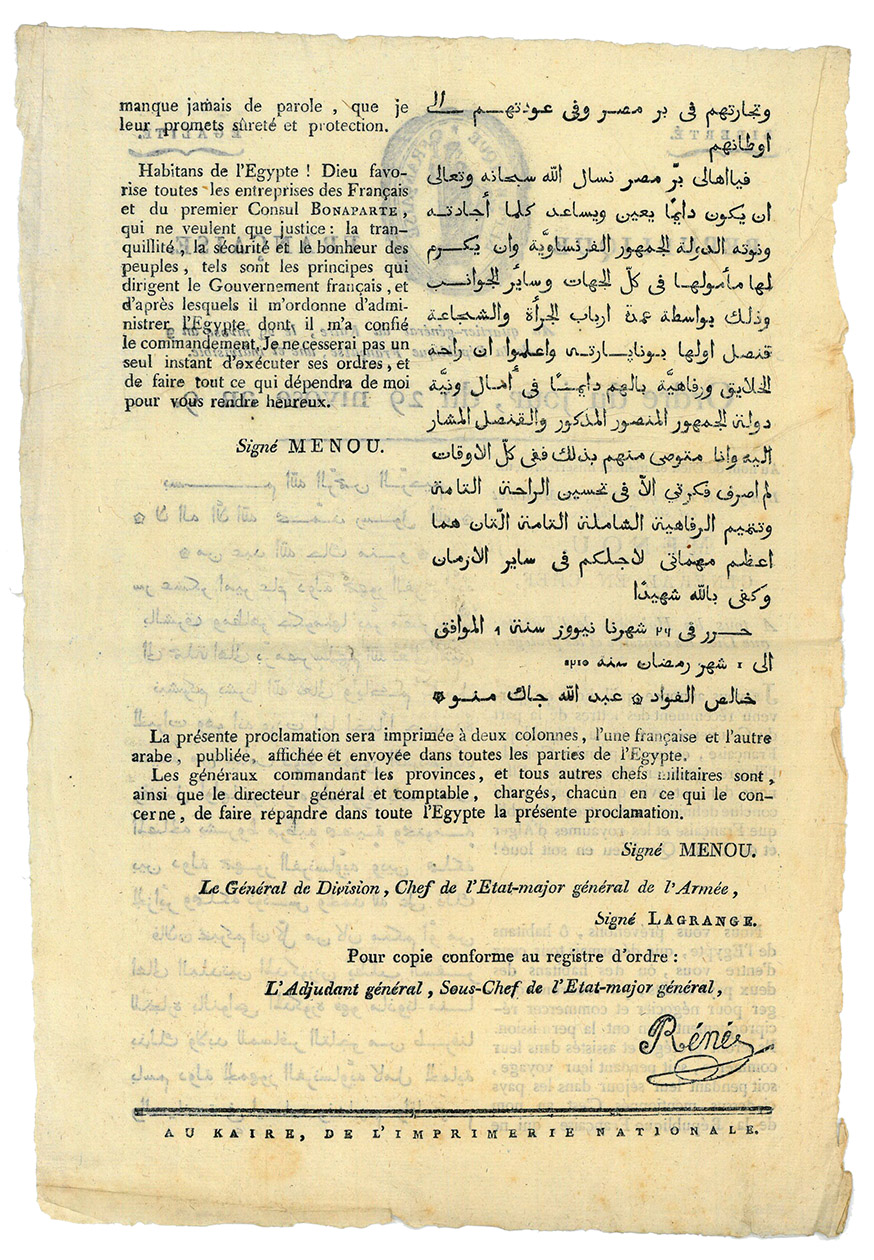 manque jamais de parole , que je
leur promets sûreté et protection.
Habitans de l'Egypte ! Dieu favo-
rise toutes les entreprises des Français
et du premier Consul BONAPARTE ,
qui ne veulent que justice : la tran-
quillité , la sécurité et le bonheur des
peuples , tels sont les principes qui
dirigent le Gouvernement français , et
d'après lesquels il m'ordonne d'admi-
nistrer l'Egypte dont il m'a confié
le commandement. Je ne cesserai pas un
seul instant d'exécuter ses ordres , et
de faire tout ce qui dépendra de moi
pour vous rendre heureux.
Signé MENOU.
وتجارتهم فى بر مصر وفى عودتهم الى
اوطانهم
فيااهالى بّر مصر نسال الله سبحانه وتعالى
ان يكون دايمًا يعين ويساعد كلما أجادته
ونوته الدولة الجمهور الفرنساويّة وان يكرم
لها مأمولها فى كلّ الجهات وسايُر الجوانب
وذلك بواسطة عمدة ارباب الجرأة والشجاعة
قنصل اولها بونابارته واعلموا ان راحة
الخلايق ورفاهيّة بالهم دايمًا فى أمال ونيّة
دولة الجمهور المنصور المذكور والقنصل المشار
اليه وانا متوصى منهم بذلك ففى كلّ الاوقات
لم اصرف فكرتي الاّ فى تحسين الراحة التامة
وتتميم الرفاهية الشاملة التامة الّتان هما
اعظم مهمّاتى لاجلكم فى ساير الازمان
وكفى بالله شهيدًا
حرر فى ٢٩ شهرنا نيووز سنة ٩ الموافق
الى ٤ شهر رمضان سنة ١٢١٥
خالص الفواد عبد الله جاك منو
La présente proclamation sera imprimée à deux colonnes , l'une française et l'autre
arabe , publiée , affichée et envoyée dans toutes les parties de l'Egypte.
Les généraux commandant les provinces , et tous autres chefs militaires sont ,
ainsi que le directeur général et comptable , chargés , chacun en ce qui le con-
cerne , de faire répandre dans toute l'Egypte la présente proclamation.
Signé MENOU.
Le Général de Division , Chef de l'Etat-major général de l'Armée ,
Signé LAGRANGE.
Pour copie conforme au registre d'ordre :
L'Adjudant général , Sous-Chef de l'Etat-major général ,
Réné
AU KAIRE, DE L'IMPRIMERIE NATIONALE.